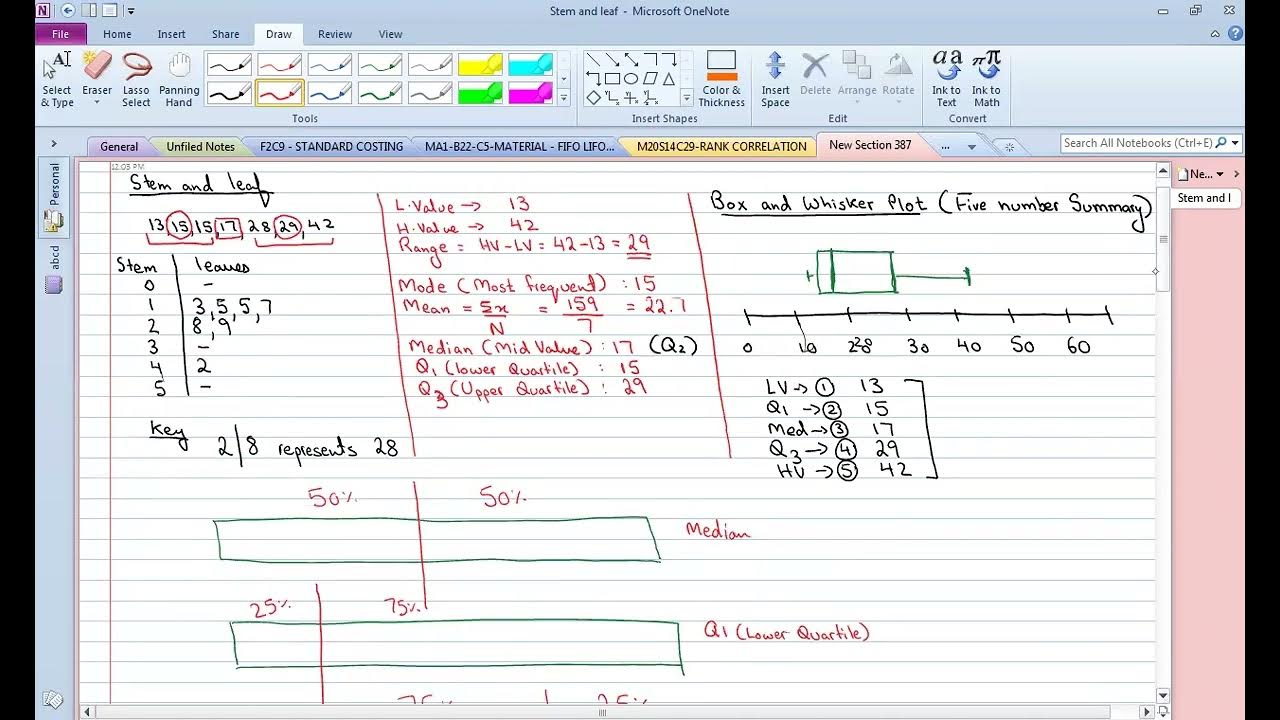 Stem and leaf - Microsoft OneNote
File Home Insert Share Draw Review View
Select & Type
Eraser
Lasso Select
Panning Hand
Color & Thickness
Insert Space
Delete
Arrange
Rotate
Ink to Text
Ink to Math
Tools
Insert Shapes
Edit
Convert
General
Unfiled Notes
F2C9 - STANDARD COSTING
MA1-B22-C5-MATERIAL - FIFO LIFO...
M20S14C29-RANK CORRELATION
New Section 387
...
Search All Notebooks (Ctrl+E)
Personal
abcd
Ne...
Stem and l
12:03 PM
Stem and leaf
13,15,15,17,28,29,42
Stem leaves
0 -
1 3,5,5,7
2 8,9
3 -
4 2
5 -
Key
2|8 represents 28
L.Value → 13
H.Value → 42
Range = HV-LV = 42-13 = 29
Mode (Most frequent) : 15
Mean = Σx/N = 159/7 = 22.7
Median (Mid Value) : 17 (Q2)
Q1 (lower Quartile) : 15
Q3 (Upper Quartile) : 29
Box and Whisker Plot (Five number Summary)
0 10 20 30 40 50 60
LV → 1 13
Q1 → 2 15
Med → 3 17
Q3 → 4 29
HV → 5 42
50% 50%
Median
25% 75%
Q1 (Lower Quartile)